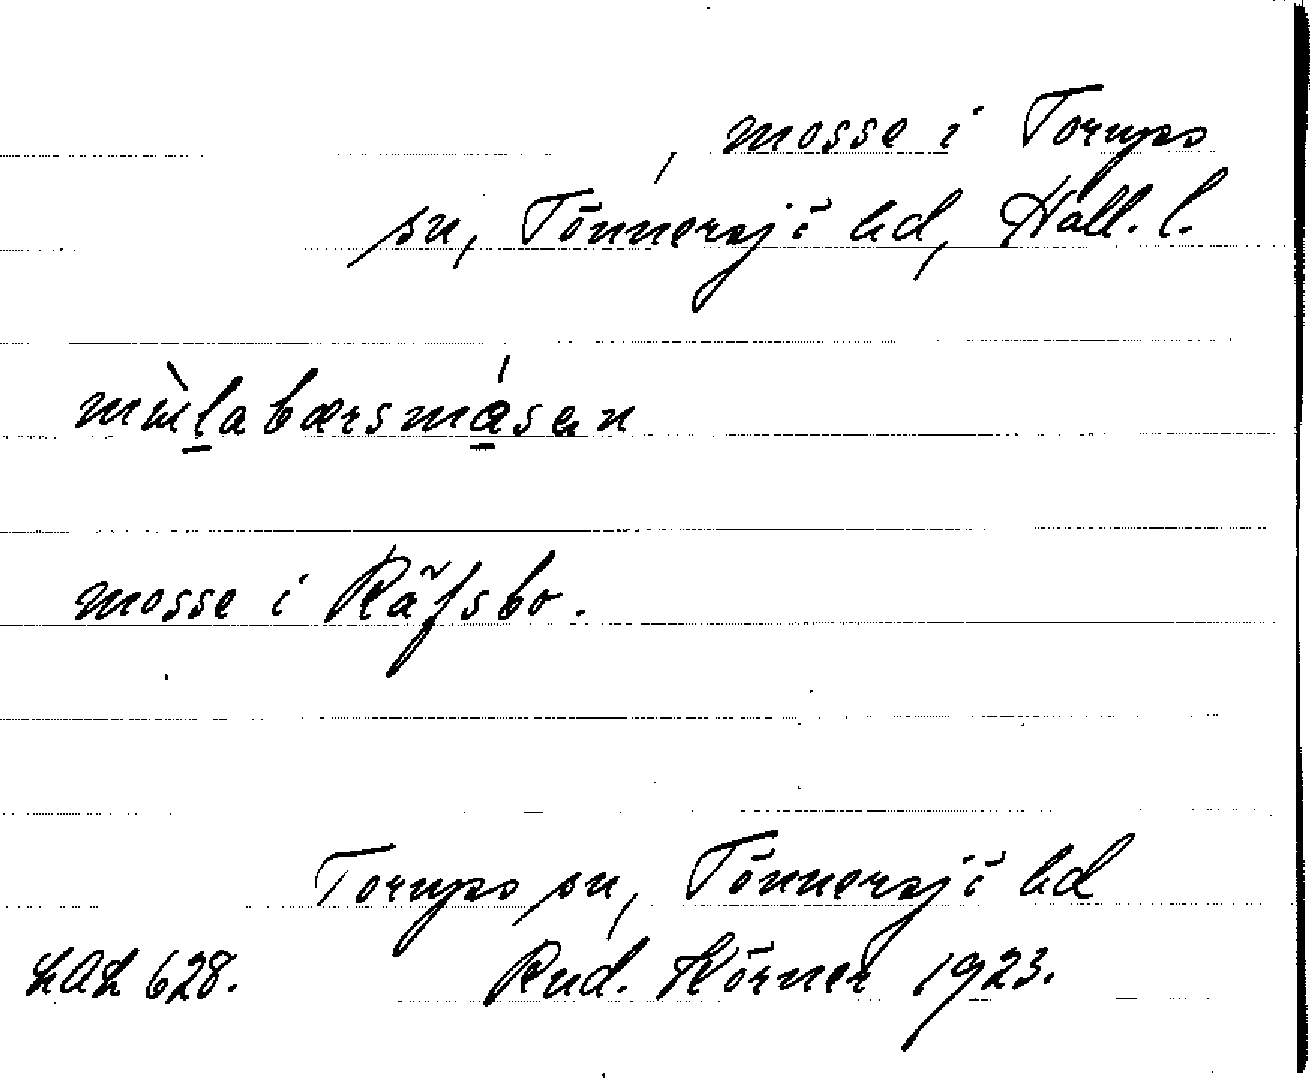 , mosse i Torups
sn, Tönnersjö hd, Hall. l.
mosse i Räfsbo.
Torups sn, Tönnersjö hd
LAL 628. Rud. Körner 1923.